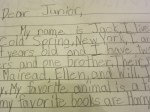 Dear Junior,
My name is Jack. I live
old Spring, New York. I am
years old and I have
and one brother, their
Mairead, Ellen, and Will.
My favorite animal is a
my favorite books are